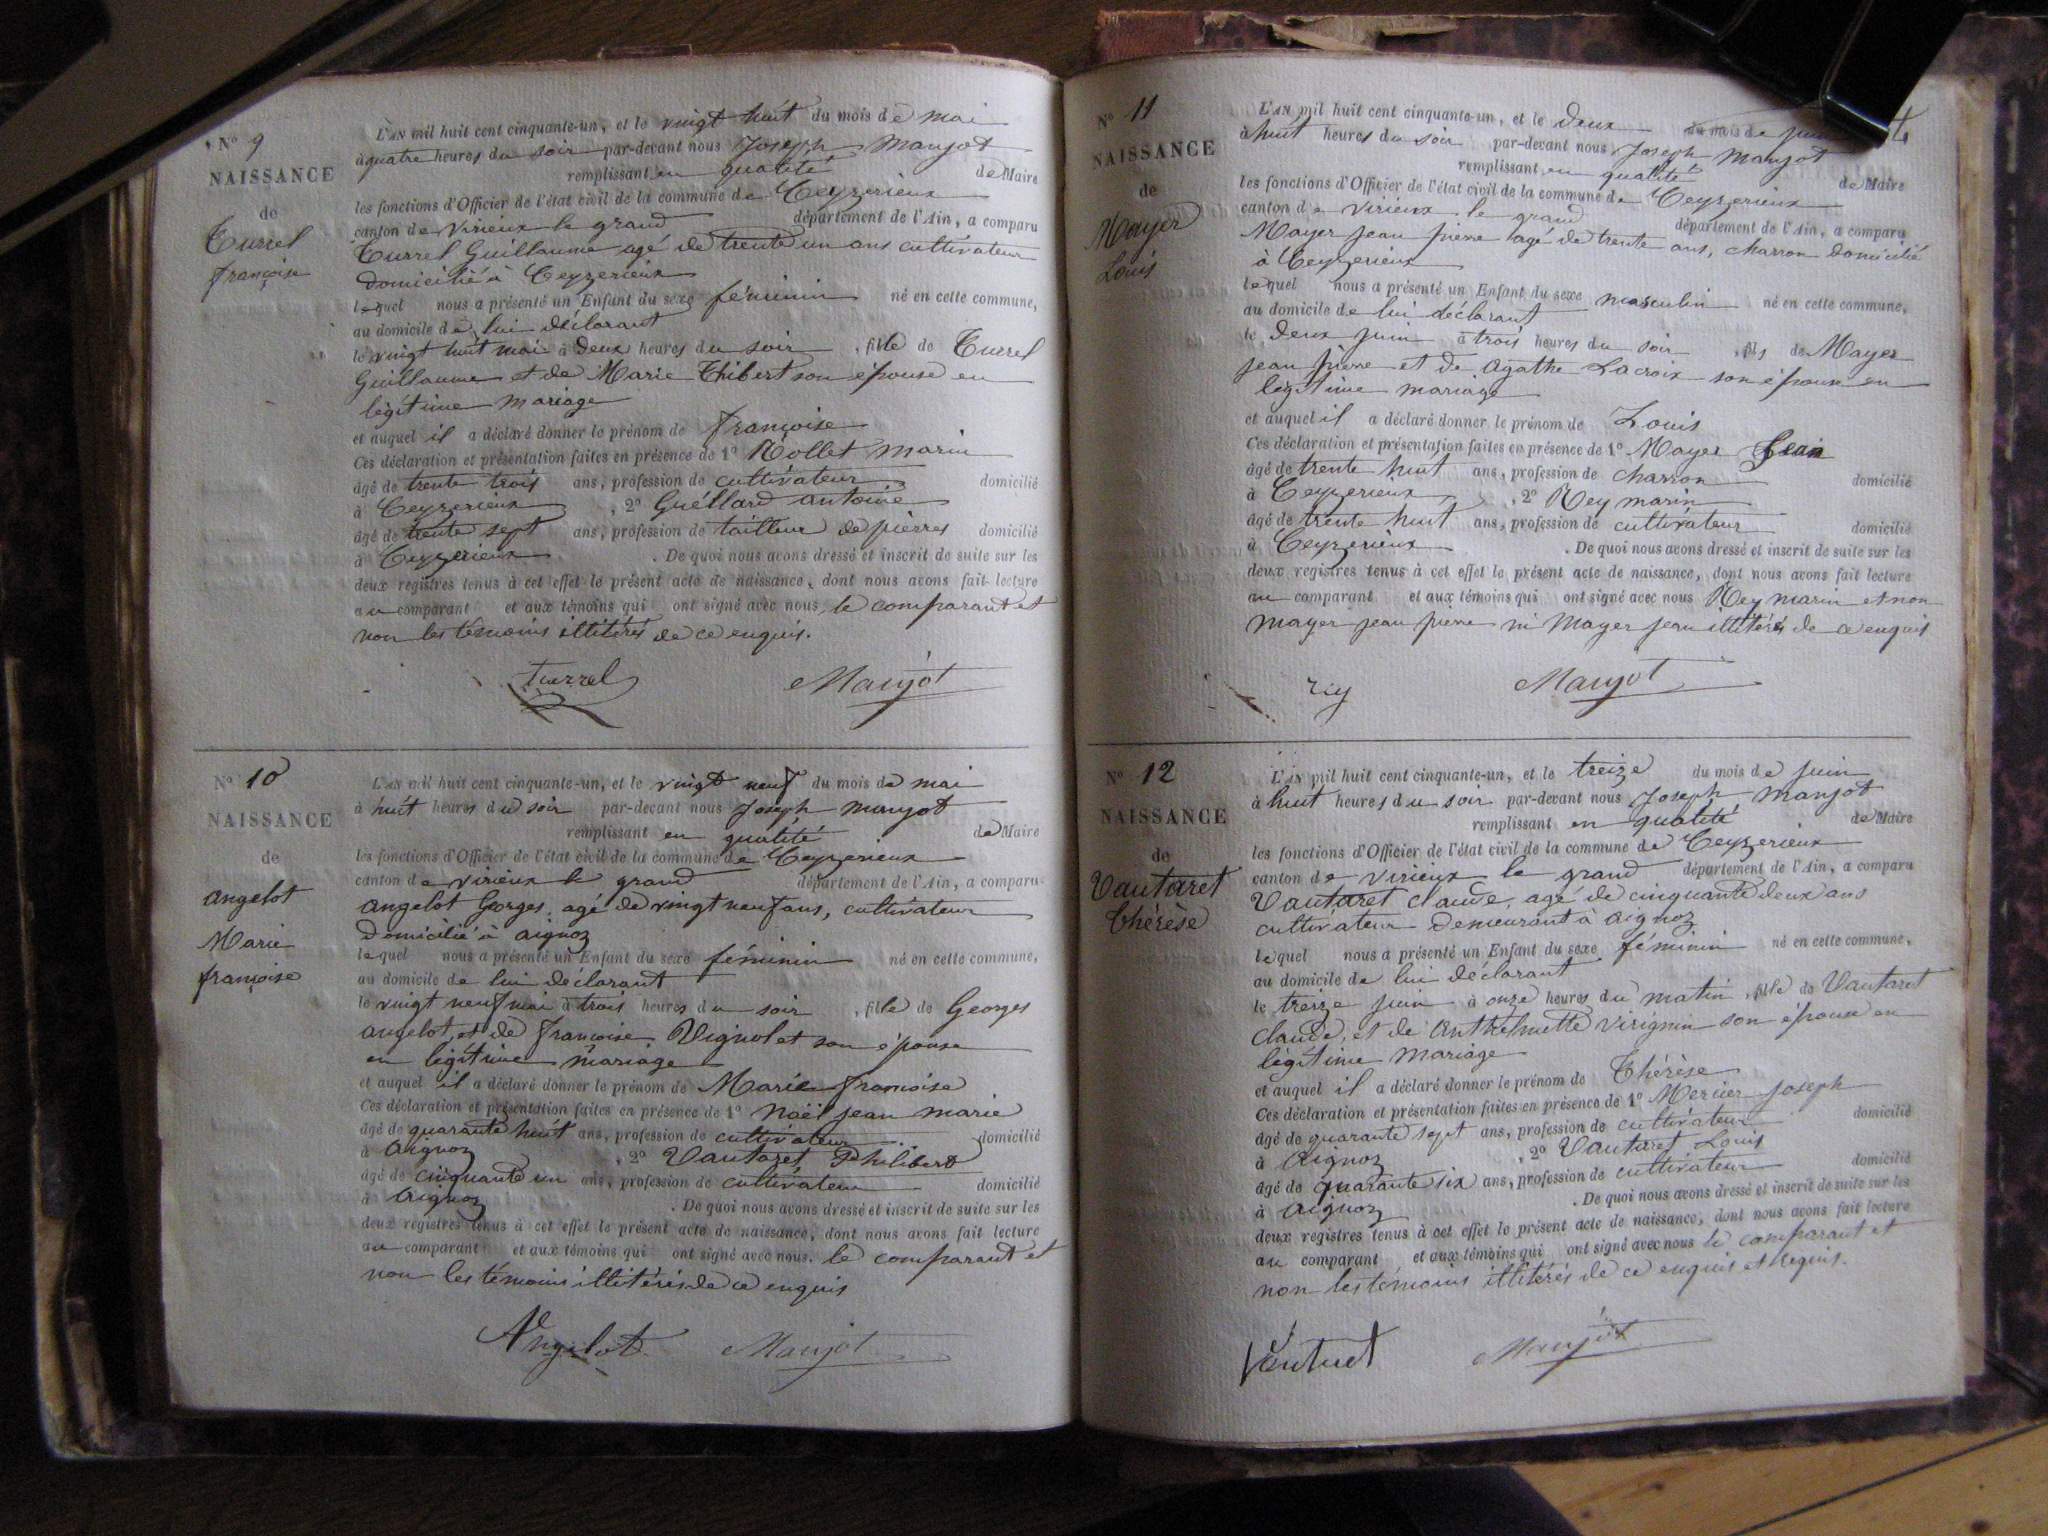 N° 9
NAISSANCE
de
Turrel
françoise
L'AN mil huit cent cinquante-un, et le vingt huit du mois de mai
à quatre heures du soir par-devant nous Joseph Maujot
remplissant en qualité de Maire
les fonctions d'Officier de l'état civil de la commune de Ceyzerieux
canton de virieux le grand département de l'Ain, a comparu
Turrel Guillaume agé de trente un ans cultivateur
domicilié à Ceyzerieux
lequel nous a présenté un Enfant du sexe féminin né en cette commune,
au domicile de lui déclarant
le vingt huit mai à deux heures du soir, fille de Turrel
Guillaume et de Marie Thibert son épouse en
légitime mariage
et auquel il a déclaré donner le prénom de françoise
Ces déclaration et présentation faites en présence de 1° Rollet marin
âgé de trente trois ans, profession de cultivateur domicilié
à Ceyzerieux, 2° Guéllard antoine
âgé de trente sept ans, profession de tailleur de pierres domicilié
à Ceyzerieux. De quoi nous avons dressé et inscrit de suite sur les
deux registres tenus à cet effet le présent acte de naissance, dont nous avons fait lecture
au comparant et aux témoins qui ont signé avec nous, le comparant et
non les témoins illitérés de ce enquis.
Turrel Maujot
N° 10
NAISSANCE
de
angelot
Marie
françoise
L'AN mil huit cent cinquante-un, et le vingt neuf du mois de mai
à huit heures du soir par-devant nous Joseph maujot
remplissant en qualité de Maire
les fonctions d'Officier de l'état civil de la commune de Ceyzerieux
canton de virieux le grand département de l'Ain, a comparu
angelot Georges, agé de vingt neuf ans, cultivateur
domicilié à aignoz
lequel nous a présenté un Enfant du sexe féminin né en cette commune,
au domicile de lui déclarant
le vingt neuf mai à trois heures du soir, fille de Georges
angelot, et de françoise Vignolet son épouse
en légitime mariage
et auquel il a déclaré donner le prénom de Marie françoise
Ces déclaration et présentation faites en présence de 1° Noël jean marie
âgé de quarante huit ans, profession de cultivateur domicilié
à aignoz, 2° Vautaret Philibert
âgé de cinquante un ans, profession de cultivateur domicilié
à aignoz. De quoi nous avons dressé et inscrit de suite sur les
deux registres tenus à cet effet le présent acte de naissance, dont nous avons fait lecture
au comparant et aux témoins qui ont signé avec nous. le comparant et
non les témoins illitérés de ce enquis
Angelot Maujot
N° 11
NAISSANCE
de
Mayer
Louis
L'AN mil huit cent cinquante-un, et le deux du mois de
à huit heures du soir par-devant nous Joseph Maujot
remplissant en qualité de Maire
les fonctions d'Officier de l'état civil de la commune de Ceyzerieux
canton de virieux le grand département de l'Ain, a comparu
Mayer jean pierre agé de trente ans, charron domicilié
à Ceyzerieux
lequel nous a présenté un Enfant du sexe masculin né en cette commune,
au domicile de lui déclarant
le deux juin à trois heures du soir, fils de Mayer
jean pierre et de agathe Lacroix son épouse en
légitime mariage
et auquel il a déclaré donner le prénom de Louis
Ces déclaration et présentation faites en présence de 1° Mayer Jean
âgé de trente huit ans, profession de charron domicilié
à Ceyzerieux, 2° Rey marin
âgé de trente huit ans, profession de cultivateur domicilié
à Ceyzerieux. De quoi nous avons dressé et inscrit de suite sur les
deux registres tenus à cet effet le présent acte de naissance, dont nous avons fait lecture
au comparant et aux témoins qui ont signé avec nous Rey marin et non
mayer jean pierre ni Mayer jean illitérés de ce enquis
rey Maujot
N° 12
NAISSANCE
de
Vautaret
Thérèse
L'AN mil huit cent cinquante-un, et le treize du mois de juin
à huit heures du soir par-devant nous Joseph Manjot
remplissant en qualité de Maire
les fonctions d'Officier de l'état civil de la commune de Ceyzerieux
canton de virieux le grand département de l'Ain, a comparu
Vautaret claude, agé de cinquante deux ans
cultivateur demeurant à aignoz
lequel nous a présenté un Enfant du sexe féminin né en cette commune,
au domicile de lui déclarant
le treize juin à onze heures du matin, fille de Vautaret
claude, et de Anthelmette virignin son épouse en
légitime mariage
et auquel il a déclaré donner le prénom de Thérèse
Ces déclaration et présentation faites en présence de 1° Mercier joseph
âgé de quarante sept ans, profession de cultivateur domicilié
à aignoz, 2° Vautaret Louis
âgé de quarante six ans, profession de cultivateur domicilié
à aignoz. De quoi nous avons dressé et inscrit de suite sur les
deux registres tenus à cet effet le présent acte de naissance, dont nous avons fait lecture
au comparant et aux témoins qui ont signé avec nous le comparant et
non les témoins illitérés de ce enquis et requis.
Maujot